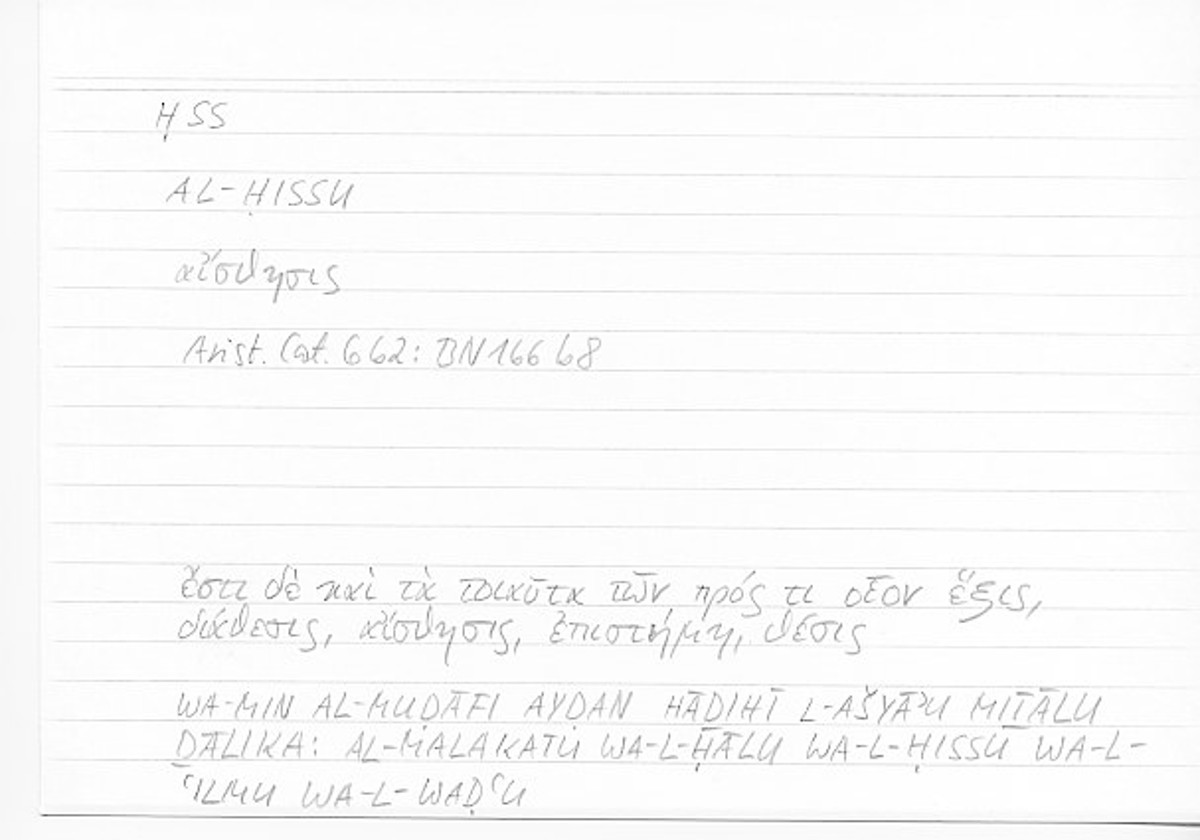 ḤSS
AL-ḤISSU
αἴσθησις
Arist. Cat. 6b2: BN 166b8
ἔστι δὲ καὶ τὰ τοιαῦτα τῶν πρός τι οἷον ἕξις,
διάθεσις, αἴσθησις, ἐπιστήμη, θέσις
WA-MIN AL-MUḌĀFI AYḌAN HĀḎIHĪ L-AŠYĀʾU MIṮĀLU
ḎĀLIKA: AL-MALAKATU WA-L-ḤĀLU WA-L-ḤISSU WA-L-
ʿILMU WA-L-WAḌʿU